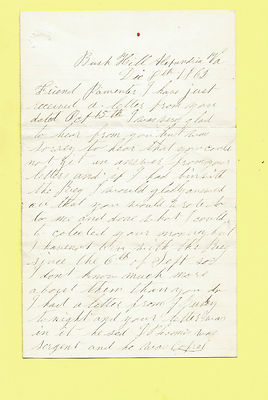 Bush Hill Alexandria Va
Dec 8th 1863
Friend Parmenter I have just
received a letter from you
dated Oct 15th I was very glad
to hear from you but was
sorrey to hear that you could
not get an answer from your
letters and if I had bin with
the Reg I would gladly answered
all that you should wrote
to me and done what I could
to colected your money but
I haven't bin with the Reg
since the 6th of Sept so
I don't know much more
about them than you do
I had a letter from
to night and your letter was
in it he said was
sergent and he was Corpel